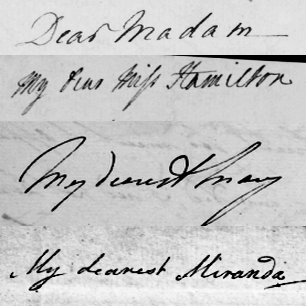 Dear Madam
My dear Miss Hamilton
My dearest Mary
My dearest Miranda